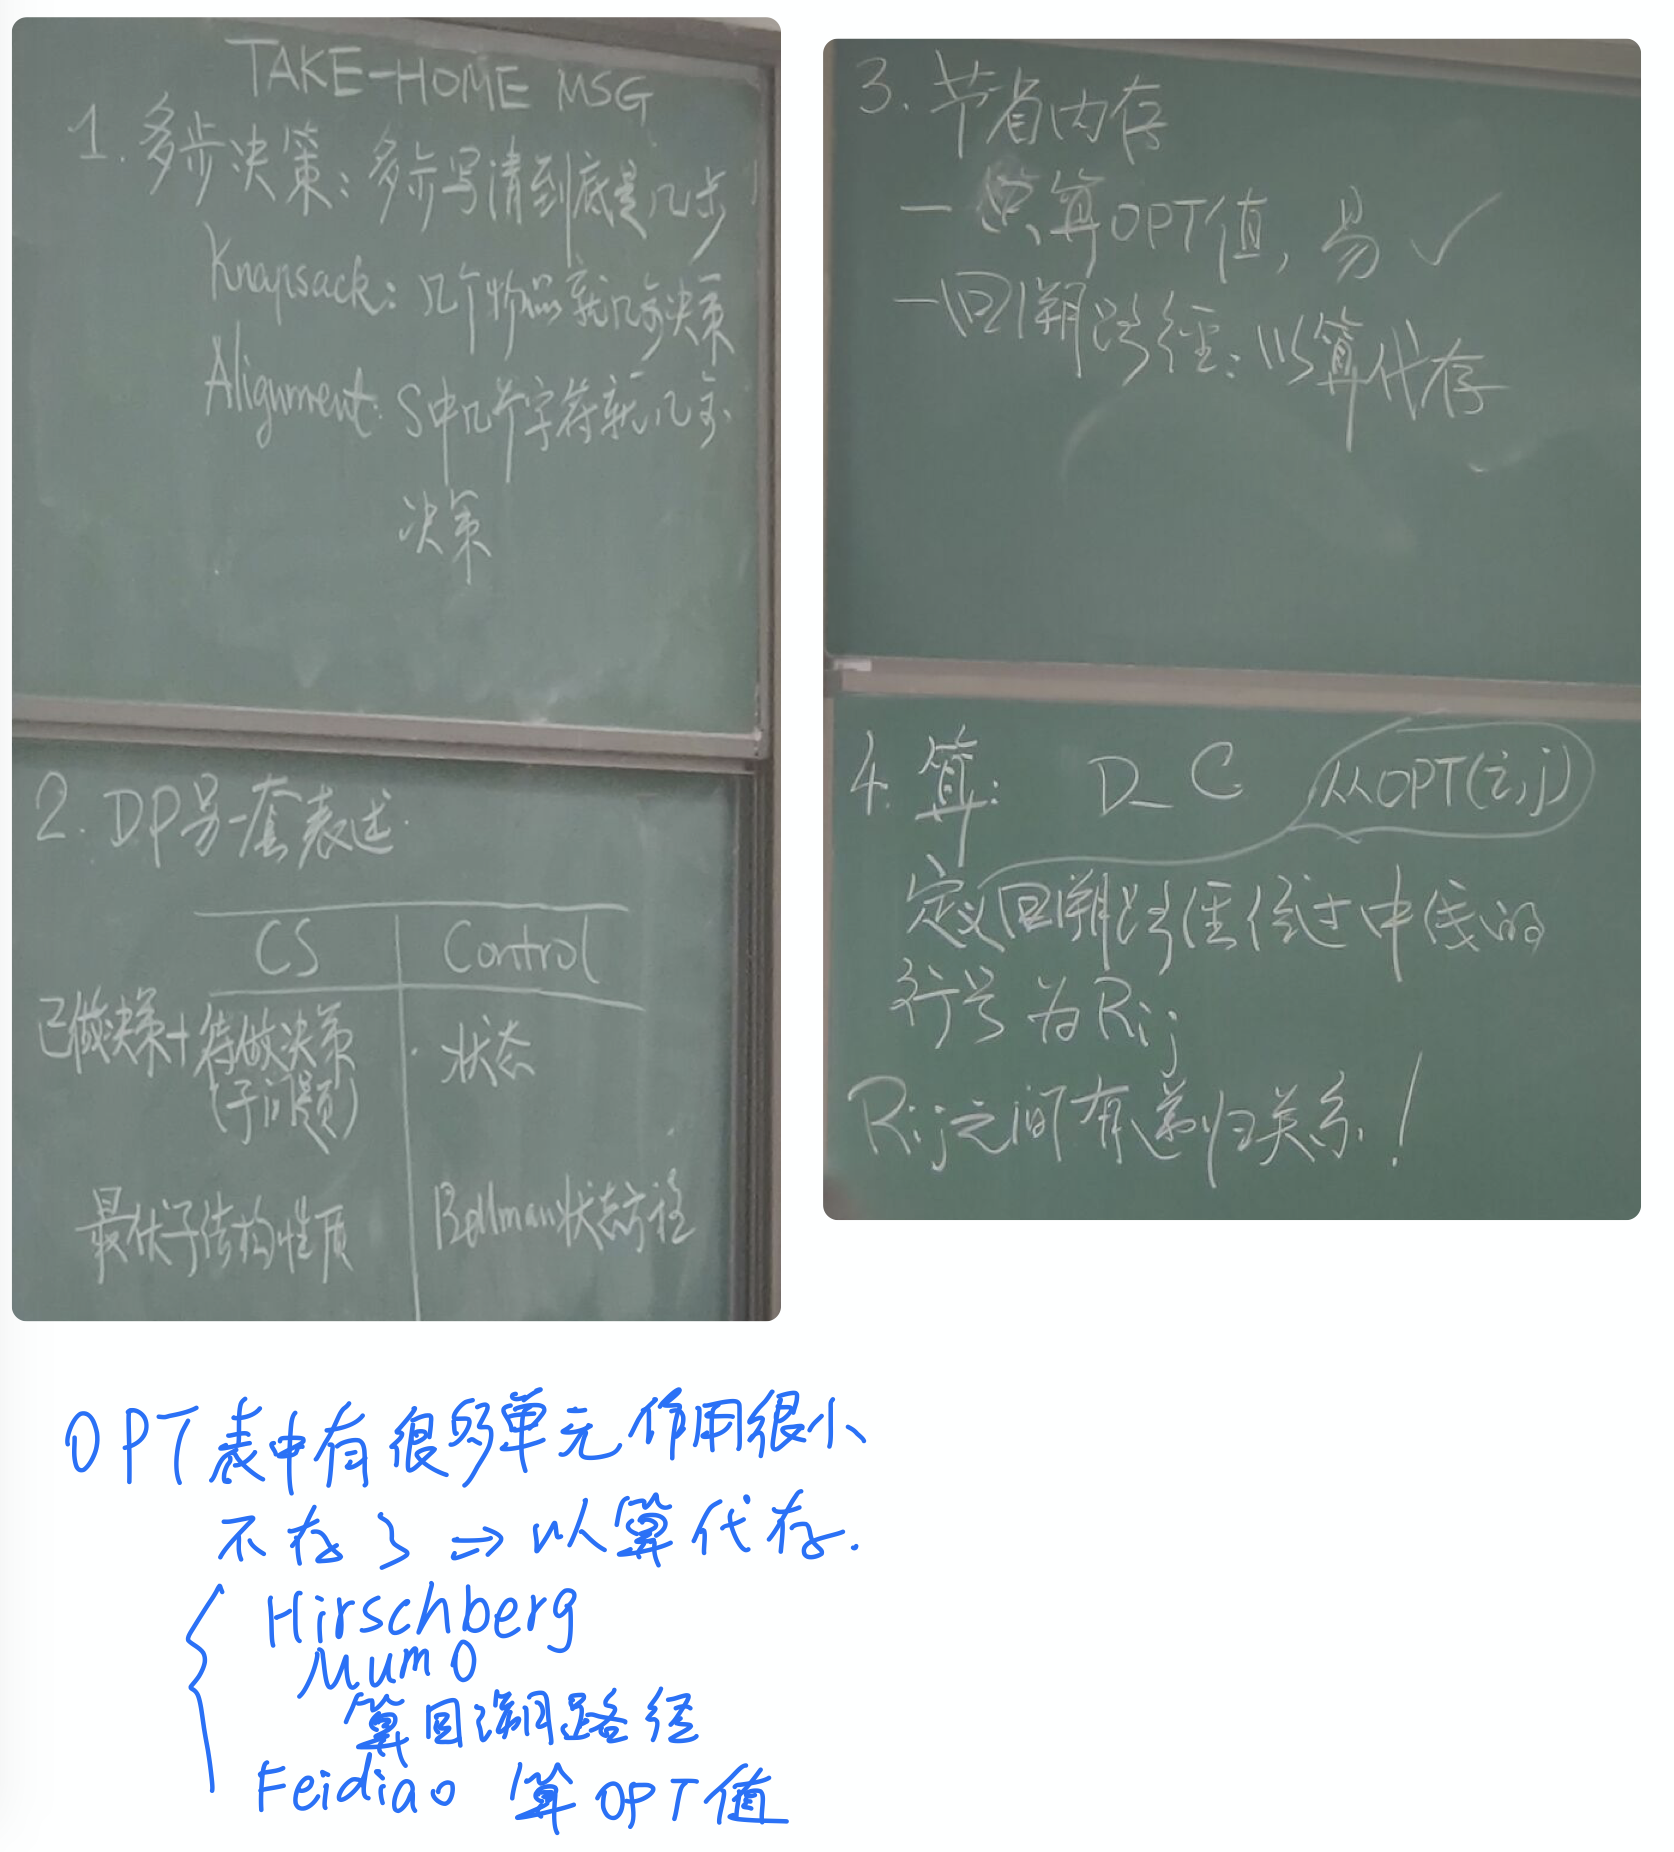 TAKE-HOME MSG
1. 多步决策: 多步写清到底是几步
Knapsack: 几个物品就几步决策
Alignment: S中几个字符就几步
决策
2. DP另一套表述.
CS Control
已做决策+待做决策 状态
(子问题)
最优子结构性质 Bellman状态方程
3. 节省内存
- 只算OPT值, 易 ✓
- 回溯路径: 以算代存
4. 算: D_C 从OPT(i,j)
定义回溯路径经过中线的
行号为Rij
Rij之间有递归关系!
OPT表中有很多单元作用很小
不存了 ⇒ 以算代存.
Hirschberg
MumO
算回溯路径
Feidiao 算OPT值